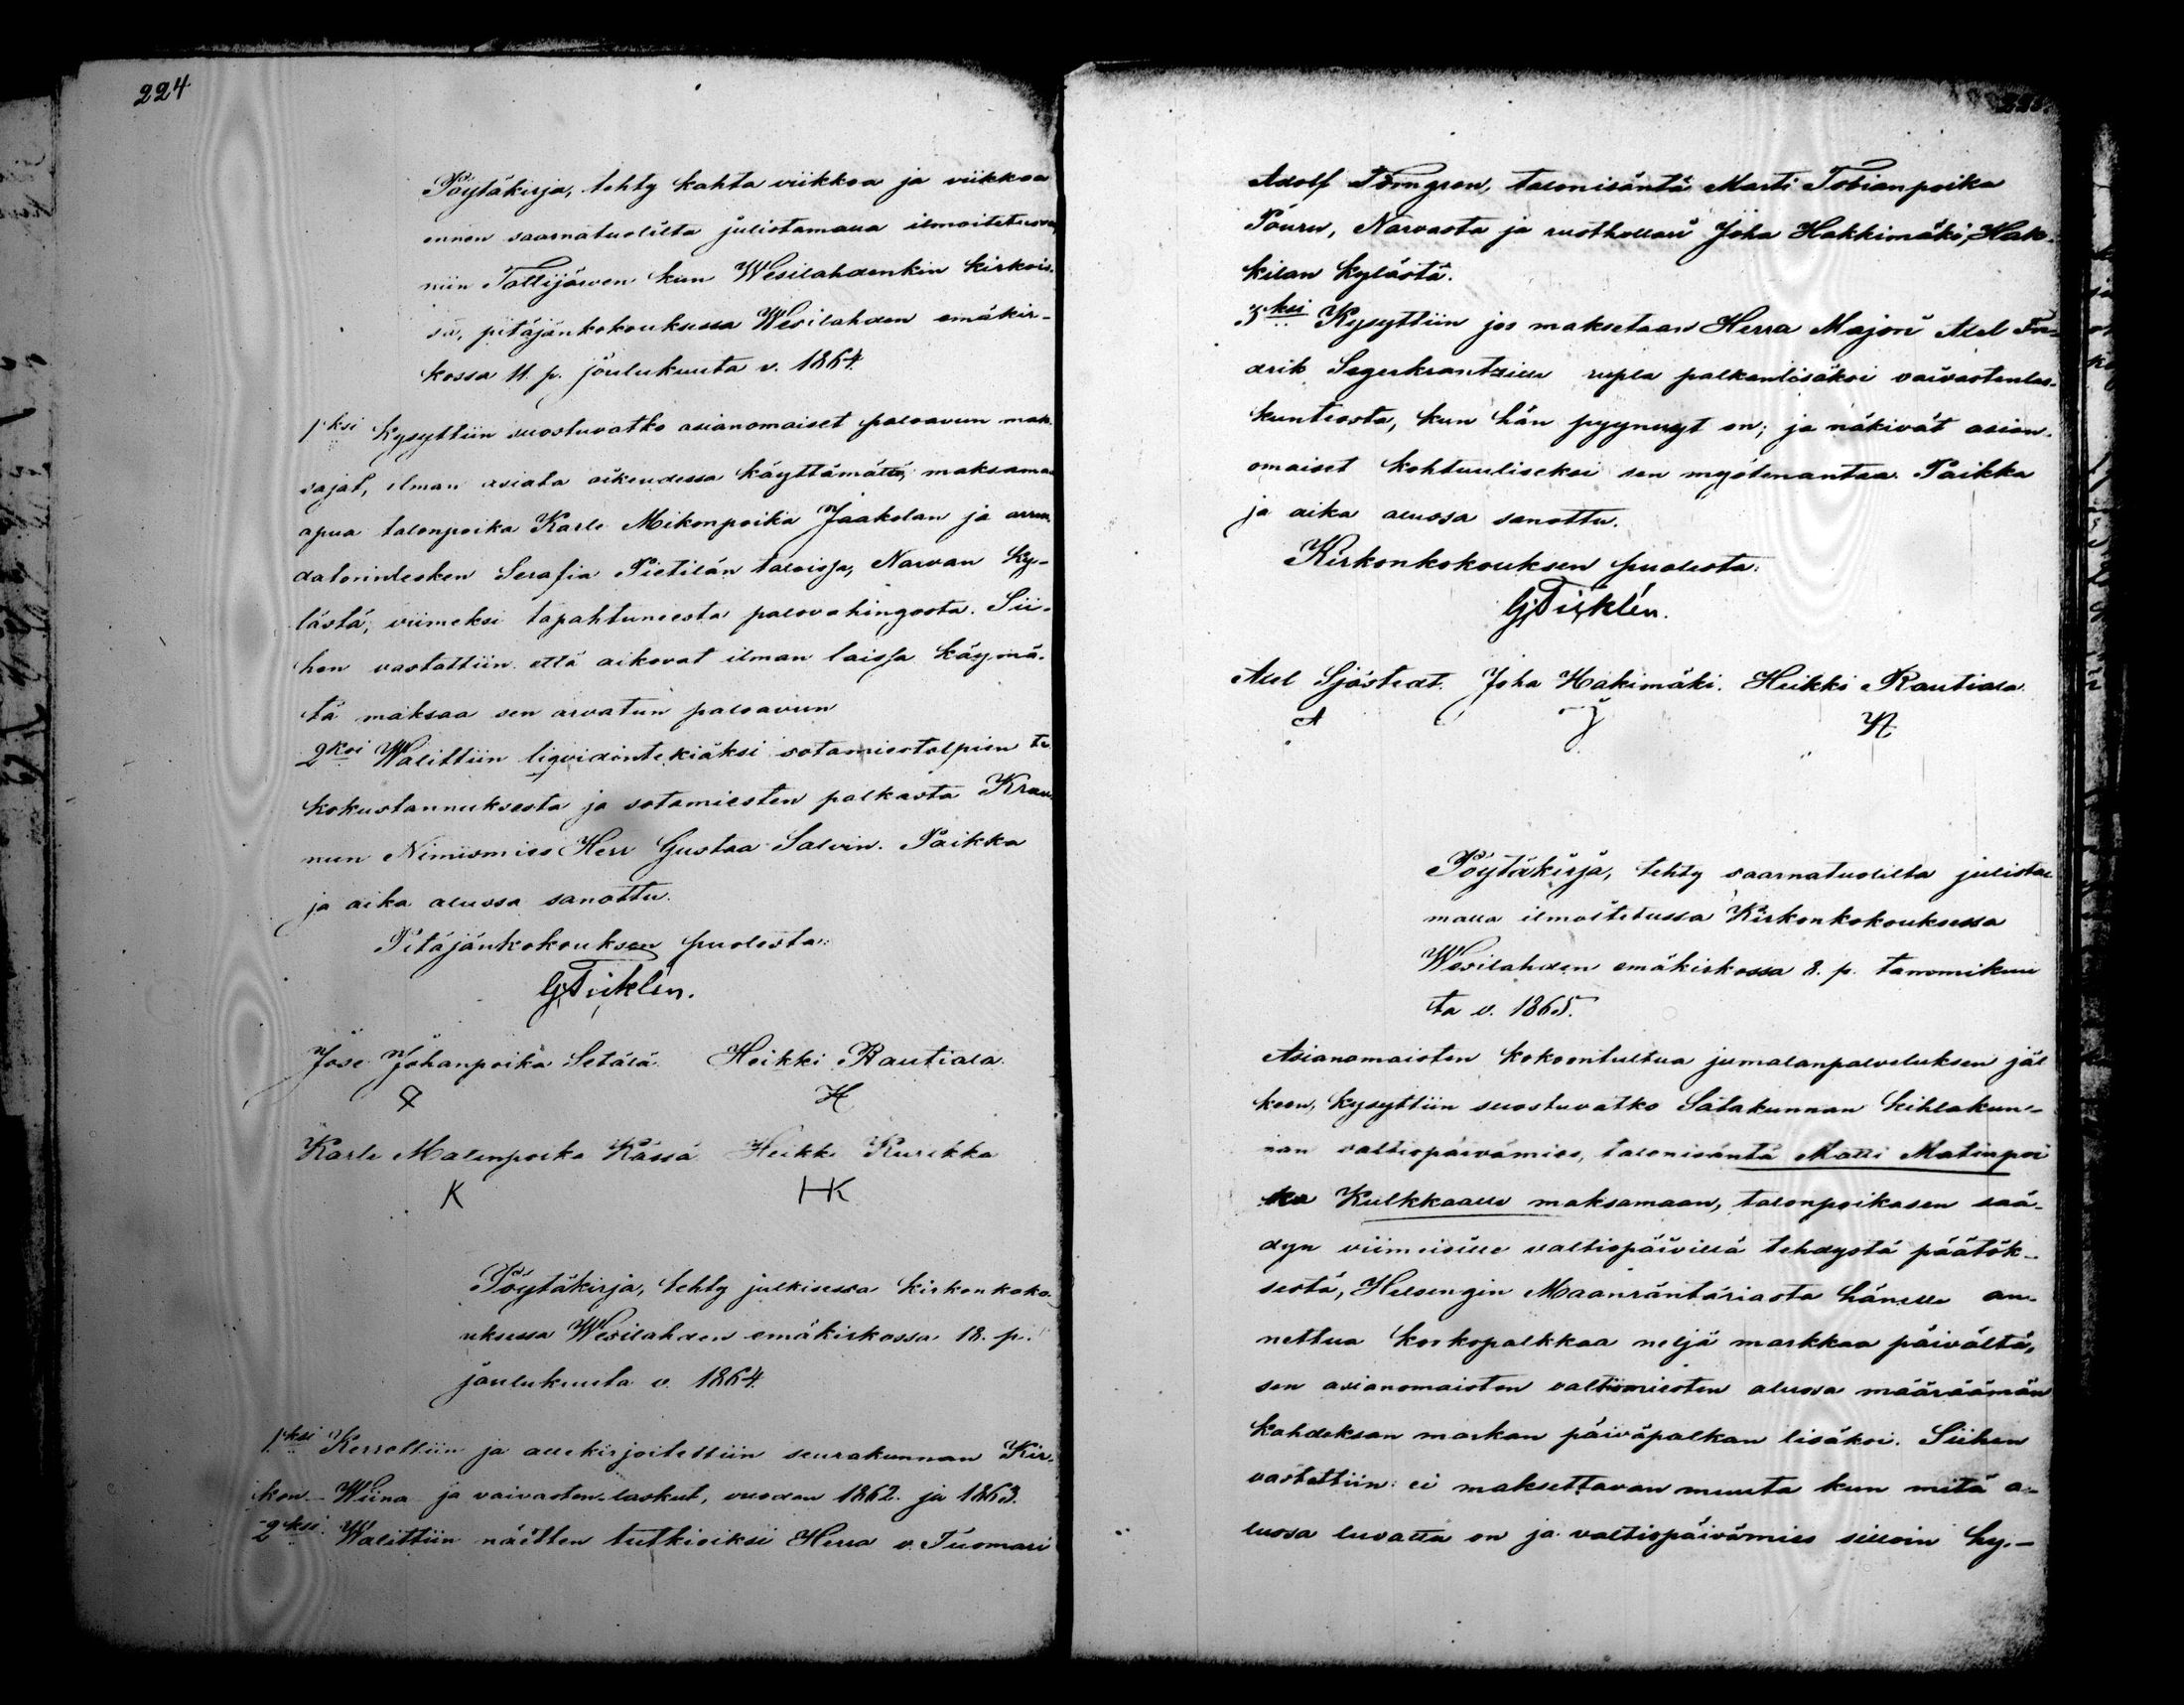 224
Pöytäkirja, tehty kahta viikkoa ja viikkoa
ennen saarnatuolilta julistamalla ilmoitetussa,
niin Tottijärven kun Wesilahdenkin kirkois-
sa, pitäjänkokouksessa Wesilahden emäkir-
kossa 11. p. joulukuuta v. 1864.
1ksi Kysyttiin suostuvatko asianomaiset paloavun mak-
sajat, ilman asiata oikeudessa käyttämättä, maksamaa
apua talonpoika Karle Mikonpoika Jaakolan ja arren
datorinlesken Serafia Pietilän taloissa, Narvan ky-
lästä, viimeksi tapahtuneesta palovahingosta. Sii-
hen vastattiin että aikovat ilman laissa käymä-
tä maksaa sen arvatun paloavun
2ksi Walittiin liqvidöntekiäksi sotamiestolpien te
kokustannuksesta ja sotamiesten palkasta Kruu-
nun Nimismies Herr Gustaa Salvin. Paikka
ja aika alussa sanottu.
Pitäjänkokouksen puolesta:
Gj Ticklén.
Jose Johanpoika Setälä Heikki Rautiala.
H
Karle Matinpoika Kässä Heikki Kurikka
K HK
Pöytäkirja, tehty julkisessa kirkonkoko-
uksessa Wesilahden emäkirkossa 18. p.
joulukuuta v. 1864.
1.ksi Kerrottiin ja allekirjoitettiin seurakunnan Kir-
kon- Wiina- ja vaivasten-laskut, vuoden 1862. ja 1863.
2ksi Walittiin näitten tutkioiksi Herra v. Tuomari
225.
Adolf Törngren, talonisäntä Marti Tobianpoika
Pouru, Narvasta ja rusthollari Joha Hakkimäki, Hak-
kilan kylästä.
3ksi Kysyttiin jos maksetaan Herra Majori Axel Fre-
drik Segerkrantzille rupla palkanlisäksi vaivastenlas-
kunteosta, kun hän pyynnyt on; ja näkivät asian-
omaiset kohtuuliseksi sen myötenantaa. Paikka
ja aika alussa sanottu.
Kirkonkokouksen puolesta:
Gj Ticklén.
Axel Sjöstedt. Joha Hakimäki. Heikki Rautiala.
A J H
Pöytäkirja, tehty saarnatuolilta julista-
malla ilmoitetussa Kirkonkokouksessa
Wesilahden emäkirkossa 8. p. tammikuu
ta v. 1865.
Asianomaisten kokoontultua jumalanpalveluksen jäl
keen, kysyttiin suostuvatko Satakunnan kihlakun-
nan valtiopäivämies, talonisäntä Matti Matinpoi
ka Kulkkaalle maksamaan, talonpoikasen sää-
dyn viimeisille valtiopäivillä tehdystä päätök-
sestä, Helsengin Maanräntäriasta hänelle an-
nettua korkopalkkaa neljä markkaa päivältä,
sen asianomaisten valtiomiesten alussa määräämän
kahdeksan markan päiväpalkan lisäksi. Siihen
vastattiin: ei maksettavan muuta kun mitä a-
lussa luvattu on ja valtiopäivämies silloin hy-